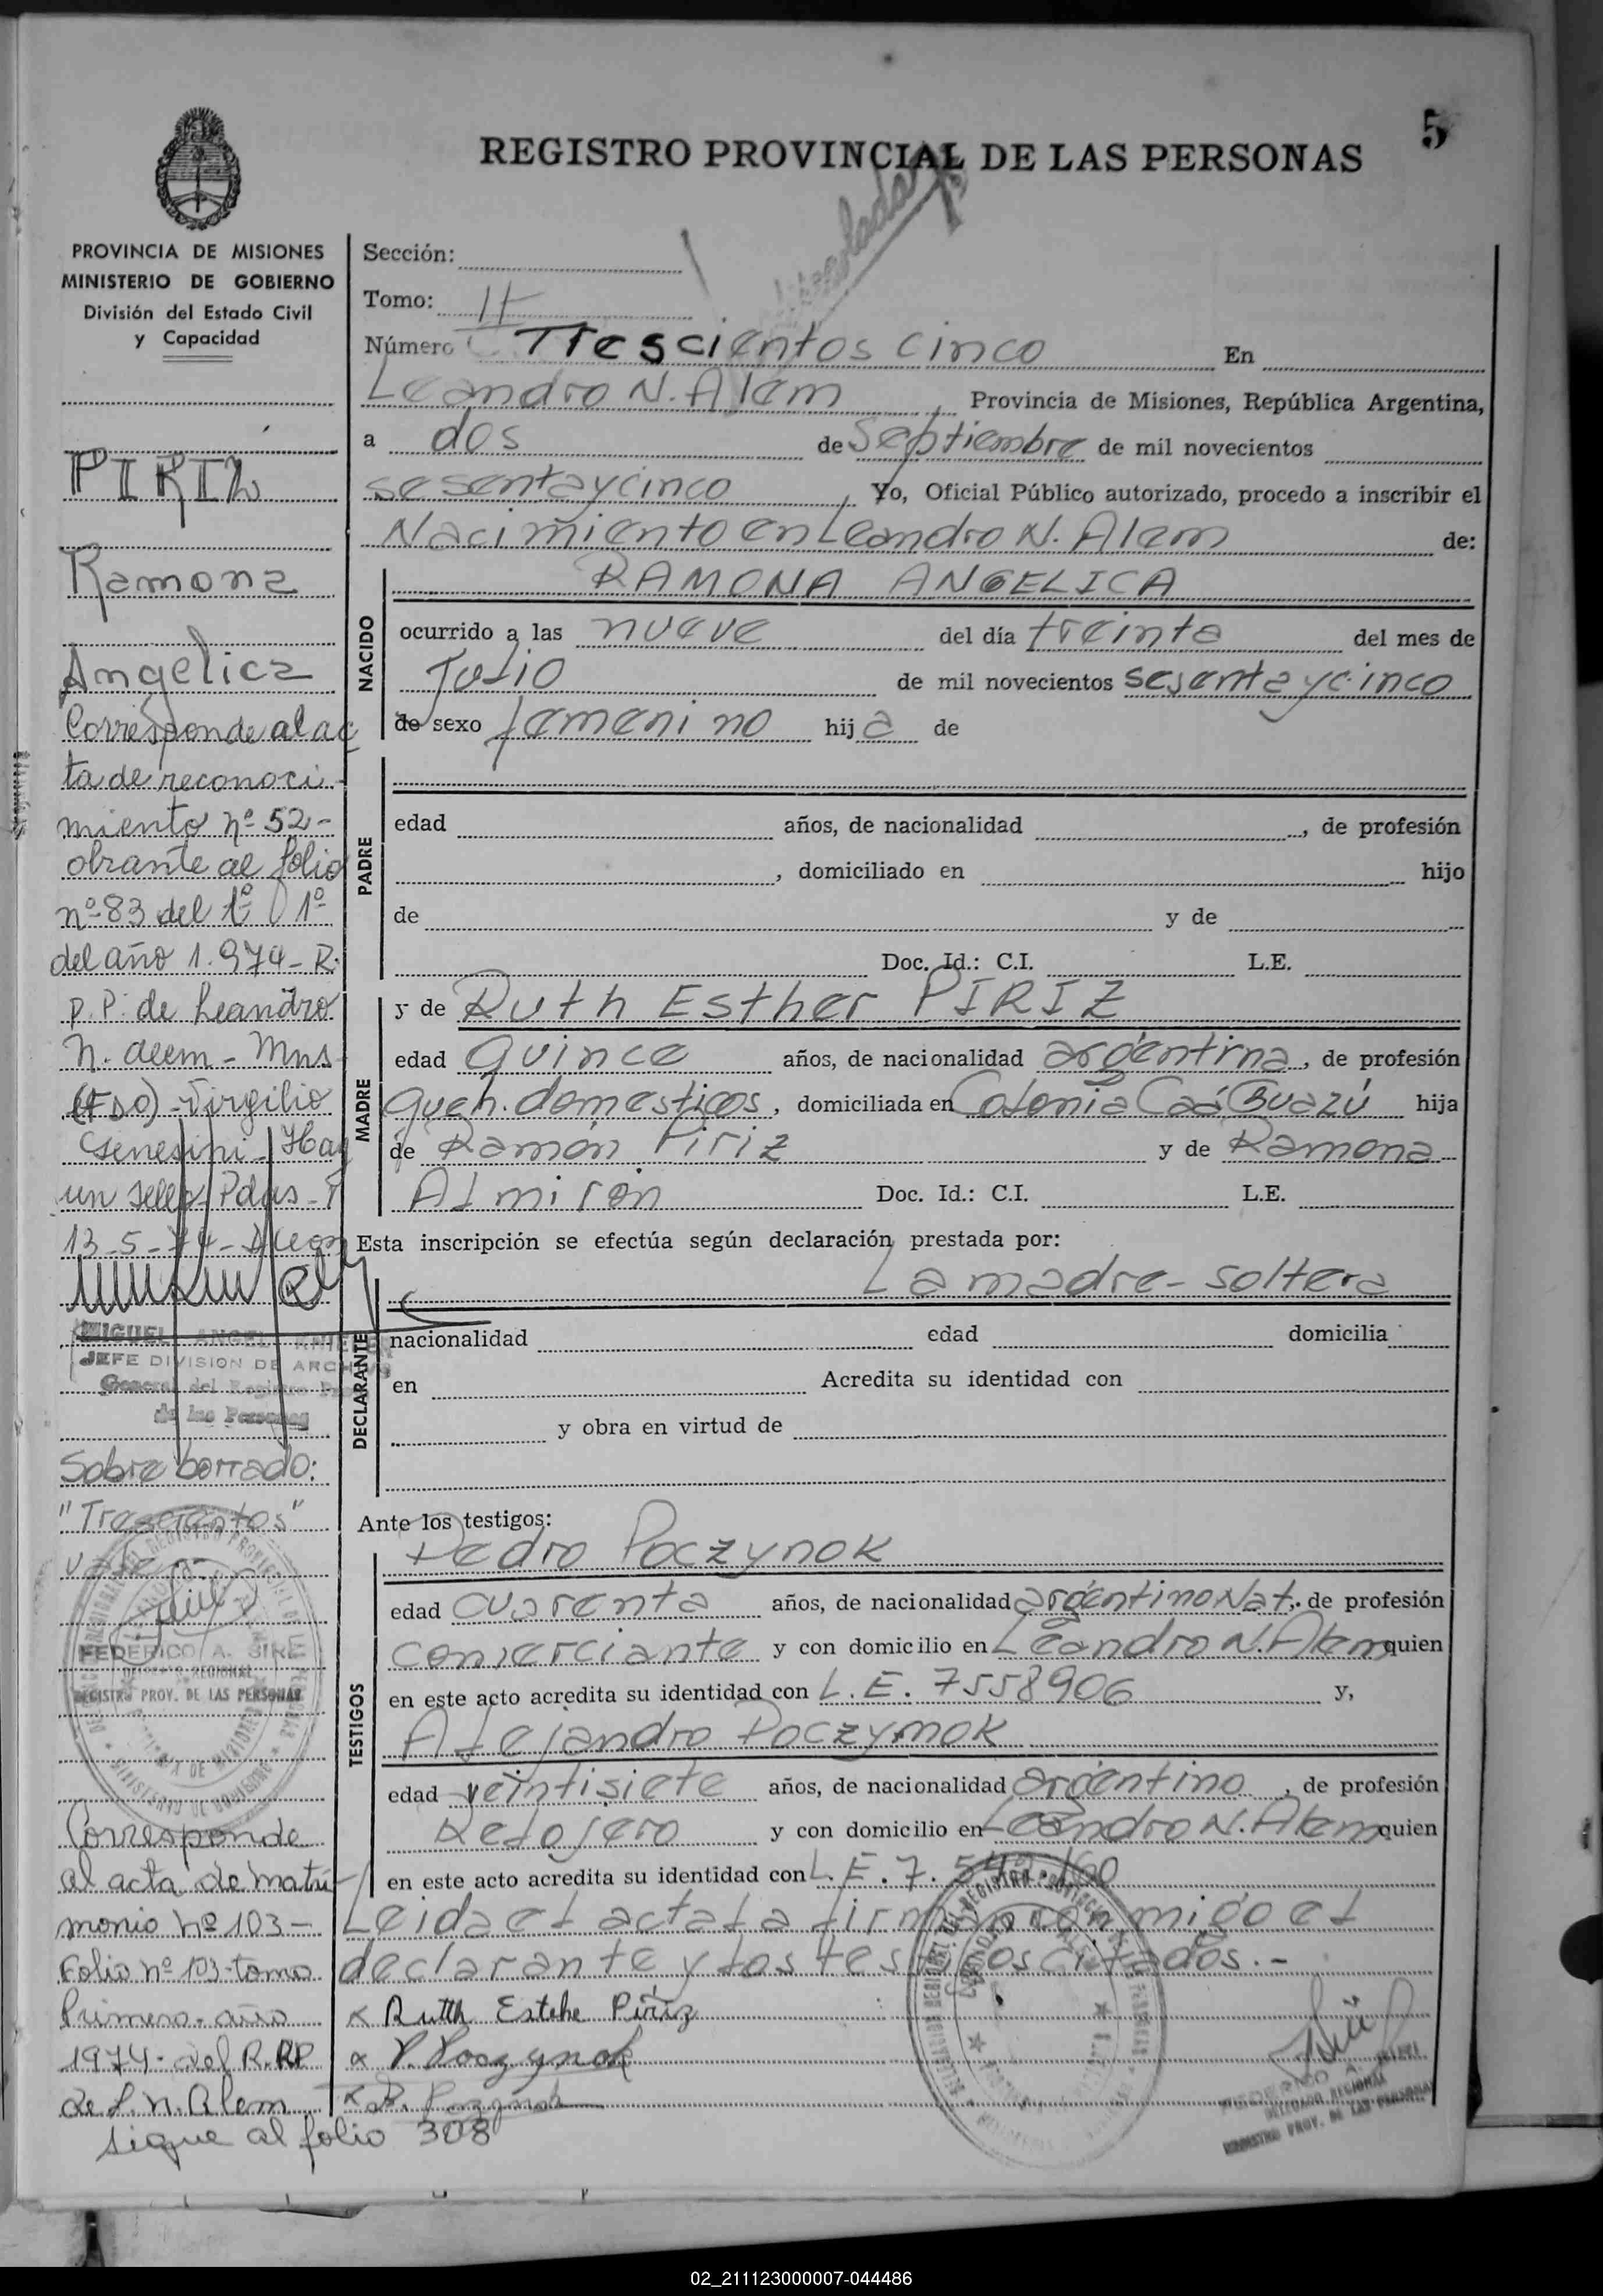 5
REGISTRO PROVINCIAL DE LAS PERSONAS
PROVINCIA DE MISIONES
MINISTERIO DE GOBIERNO
División del Estado Civil
y Capacidad
PIRIZ
Ramona
Angelica
Corresponde al ac
ta de reconoci-
miento nº 52-
obrante al folio
nº 83 del tº 1º
del año 1.974- R.
P.P. de Leandro
N. Alem - Mns
(FDO) - Virgilio
Genesini - Hay
un sello - Pdas -
13-5-74-
MIGUEL ANGEL
JEFE DIVISION DE ARCHIVO
General del Registro
de las Personas
Sobre borrado:
"Trescientos"
vale.-
FEDERICO A.
DELEGADO REGIONAL
REGISTRO PROV. DE LAS PERSONAS
Corresponde
al acta de matri-
monio Nº 103-
Folio nº 103-tomo
Primero-año
1974- del R.RP
de L.N. Alem
sigue al folio 308
Sección:
Tomo: II
Número Trescientos cinco En
Leandro N. Alem, Provincia de Misiones, República Argentina,
a dos de Septiembre de mil novecientos
sesentaycinco, Yo, Oficial Público autorizado, procedo a inscribir el
Nacimiento en Leandro N. Alem de:
RAMONA ANGELICA
NACIDO
ocurrido a las nueve del día treinta del mes de
Julio de mil novecientos sesentaycinco
de sexo femenino hija de
PADRE
edad años, de nacionalidad , de profesión
, domiciliado en hijo
de y de
Doc. Id.: C.I. L.E.
MADRE
y de Ruth Esther PIRIZ
edad quince años, de nacionalidad argentina, de profesión
queh. domesticos, domiciliada en Colonia Caá Guazú hija
de Ramón Piriz y de Ramona
Almirón Doc. Id.: C.I. L.E.
Esta inscripción se efectúa según declaración prestada por:
La madre- soltera
DECLARANTE
nacionalidad edad domicilia
en Acredita su identidad con
y obra en virtud de
Ante los testigos:
TESTIGOS
Pedro Poczynok
edad cuarenta años, de nacionalidad argentino Nat., de profesión
comerciante y con domicilio en Leandro N. Alem quien
en este acto acredita su identidad con L.E. 7558906 y,
Alejandro Poczynok
edad veintisiete años, de nacionalidad argentino, de profesión
Relojero y con domicilio en Leandro N. Alem quien
en este acto acredita su identidad con L.E. 7.
Leida el acta la firman conmigo el
declarante y los testigos citados.-
x Ruth Estehe Piriz
x P. Poczynok
x A. Poczynok
DELEGADO REGIONAL
REGISTRO PROV. DE LAS PERSONAS
02_211123000007-044486